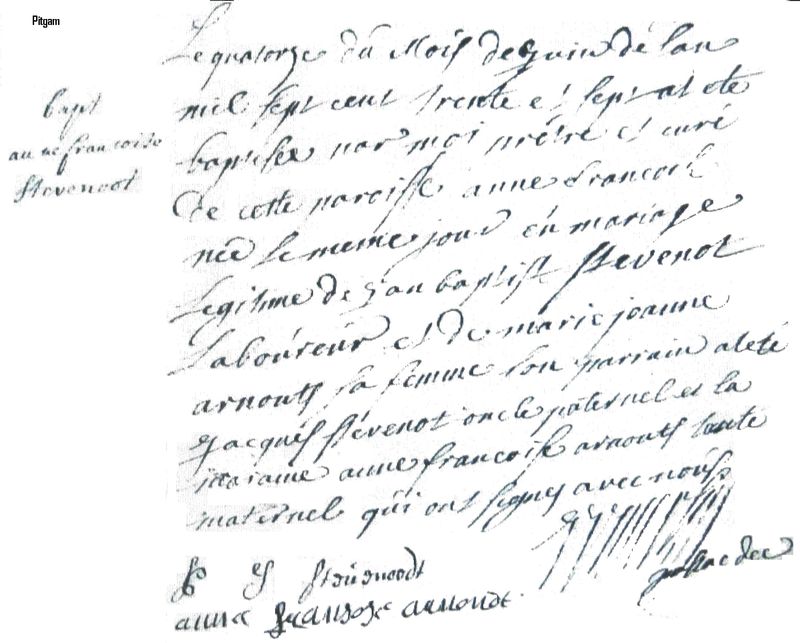 Pitgam
bapt
anne francoise
Stevenoot
Le quatorze du Mois de Juin de lan
mil sept cent trente et sept at ete
baptisee par moi prétre et curé
de cette paroisse anne francoise
née le meme jour en mariage
Legitime de jan baptist Stevenot
Laboureur et de marie joanne
arnouts sa femme son parrain at eté
Jacques Stevenot oncle paternel et la
maraine anne francoise arnouts tante
maternel qui ont signes avec nous
J S Steuenoodt
anne fransose arnondt